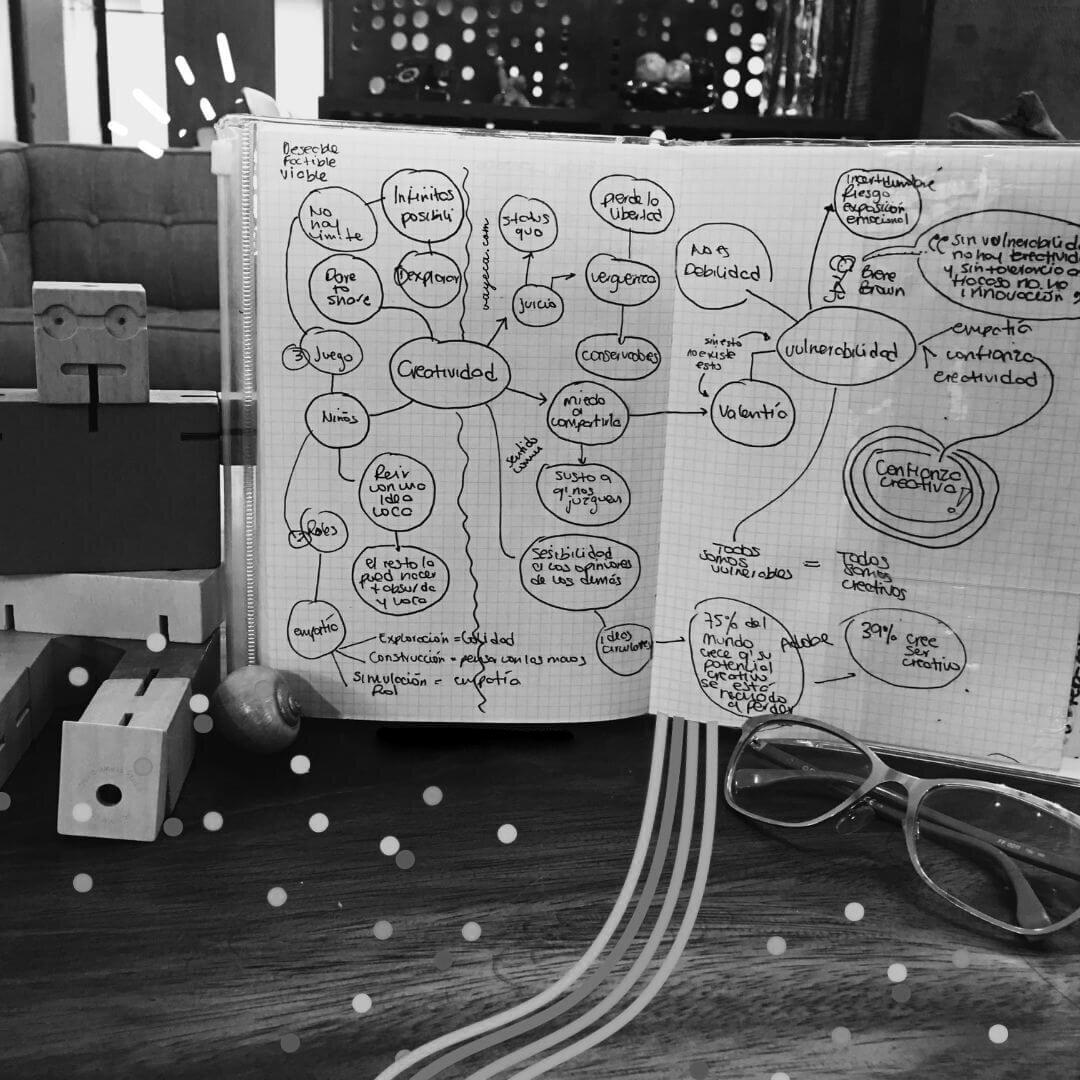 Deseable
Factible
Viable
No
hay
límite
Infinitas
posibili
Dare
to
share
Explorar
③ Juego
Creatividad
Niños
Reir
con una
idea
loca
Roles
el resto la
pued hacer
+ absurda
y loca
empatía
Exploración = Calidad
Construcción = pensar con las manos
Simulación = empatía
Rol
vayeca.com
status
quo
juicio
pierde la
libertad
verguenza
conservadores
miedo
a
compartirla
sentido
común
susto a
q' nos
juzguen
Sesibilidad
a las opiniones
de los demás
ideas
circulares
No es
Debilidad
sin esto
no existe
esto
Valentía
Vulnerabilidad
Incertidumbre
Riesgo
exposición
emocional
Brene
Brown
"sin vulnerabilida
no hay creativida
y sin tolerancia a
fracaso no
innovación"
empatía
confianza
creatividad
Confianza
creativa!
Todos
somos
vulnerables
=
Todos
somos
creativos
75% del
mundo
crece q' su
potencial
creativo
se está
a perder
Adobe
39% cree
ser
creativo